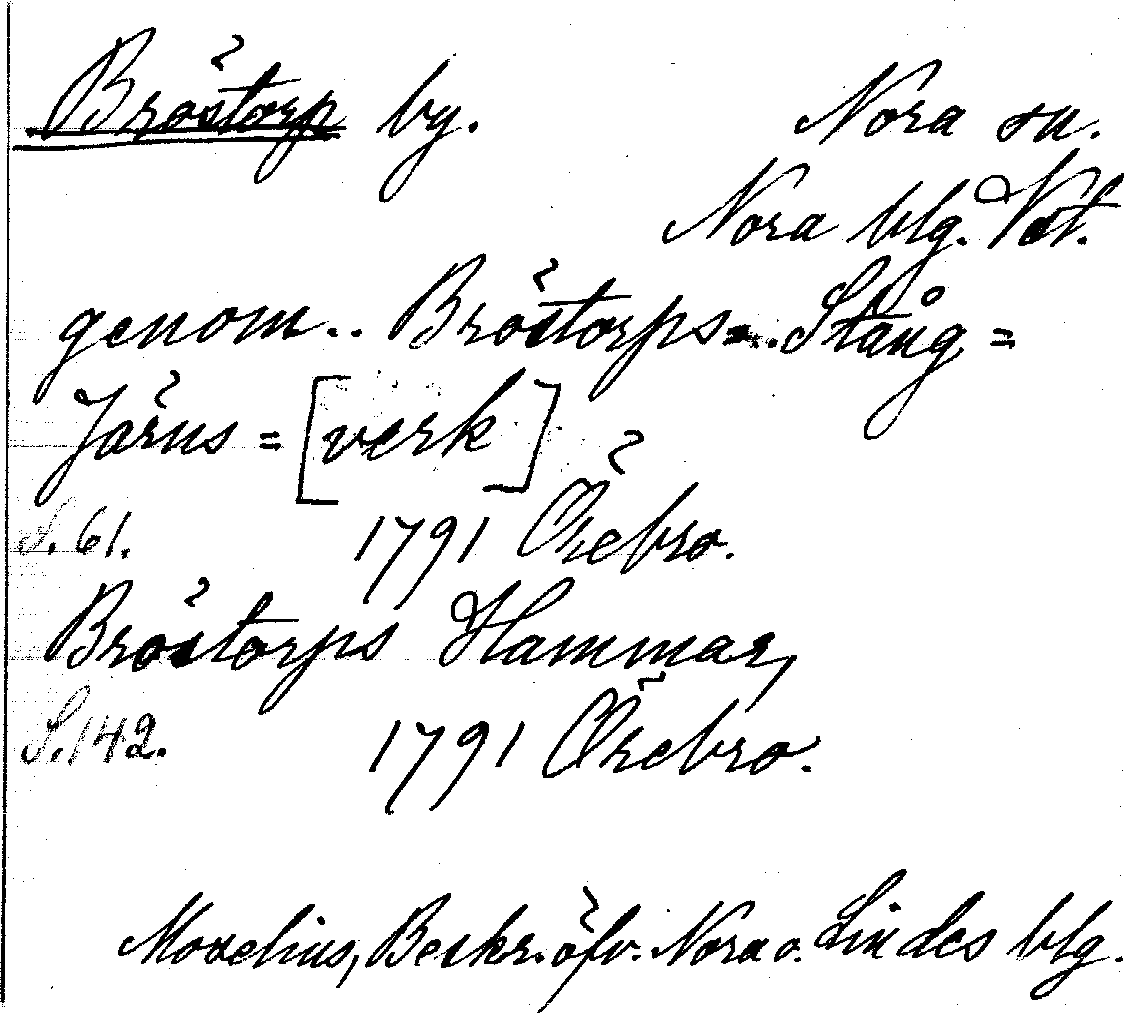 Bröstorp by.
Nora sn.
Nora blg. Vst.
genom.. Bröstorps=..Stång=
Järns=[verk]
S. 61. 1791 Örebro.
Bröstorps Hammar,
S. 142. 1791 Örebro.
Moxelius, Beskr. öfv. Nora o. Lindes blg.